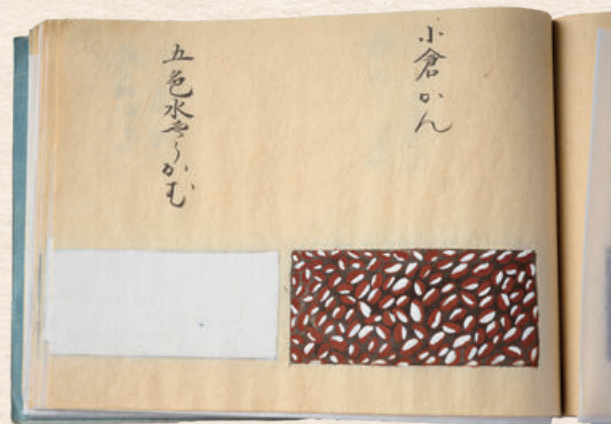 小倉かん
五色水やうかむ